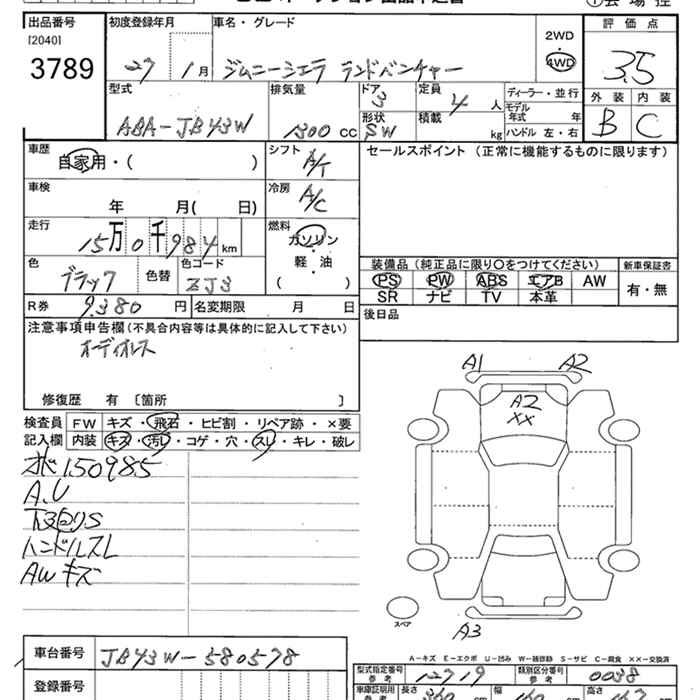 出品番号 初度登録年月 車名・グレード 評価点
[2040]
3789
27 1月 ジムニーシエラ ランドベンチャー
2WD
4WD
3.5
型式 排気量 ドア 定員 ディーラー・並行 外装 内装
ABA-JB43W 1300 cc 3 4 人 モデル年式 年 B C
形状 積載 ハンドル 左・右
SW kg
車歴 シフト セールスポイント (正常に機能するものに限ります)
自家用・( ) A/T
車検 冷房
年 月( 日) A/C
走行 燃料
15万0千984 km ガソリン
軽・油
( )
色 色替 色コード
ブラック ZJ3
装備品 (純正品に限り○をつけてください) 新車保証書
PS PW ABS エアB AW 有・無
SR ナビ TV 本革
R券 9380 円 名変期限 月 日 後日品
注意事項申告欄(不具合内容等は具体的に記入して下さい)
オーディオレス
修復歴 有 〔箇所 〕
検査員 FW キズ・飛石・ヒビ割・リペア跡・×要
記入欄 内装 キズ・汚レ・コゲ・穴・スレ・キレ・破レ
150985
A.U
下回りS
ハンドルスレ
AWキズ
A1 A2
A2
XX
A3
スペア
A-キズ E-エクボ U-凹み W-補修跡 S-サビ C-腐食 ××-交換済
車台番号 JB43W-580578
型式指定番号 参考 12719 類別区分番号 参考 0038
登録番号
長さ 360 幅 160 高さ 167